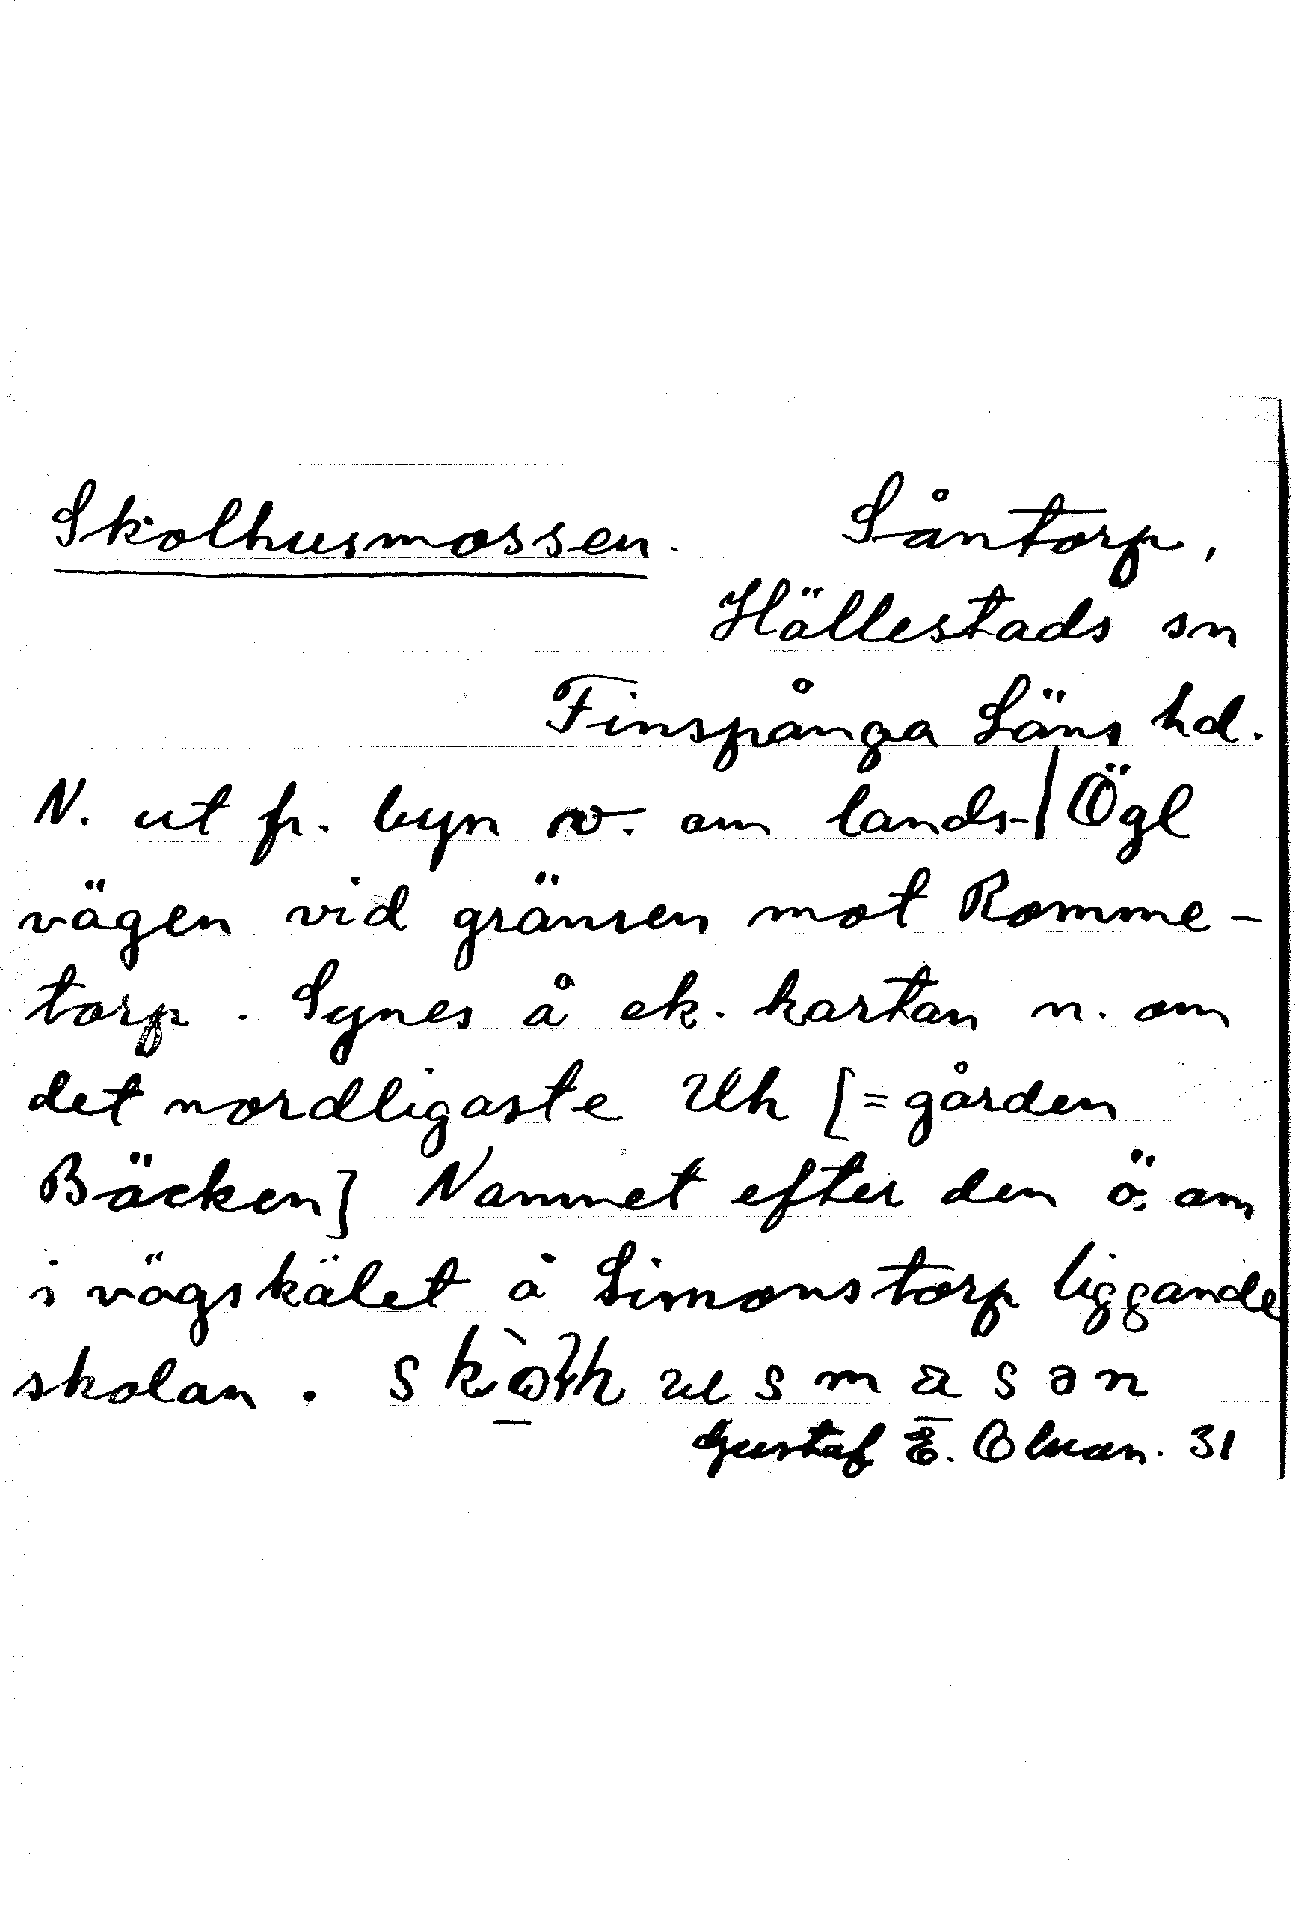 Skolhusmossen. Såntorp,
Hällestads sn
Finspånga Läns hd.
N. ut fr. byn v. om lands- | Ögl
vägen vid gränsen mot Romme-
torp. Synes å ek. kartan n. om
det nordligaste Uh [=gården
Bäcken] Namnet efter den ö. om
i vägskälet å Simonstorp liggande
skolan.
Gustaf E. Olson. 31